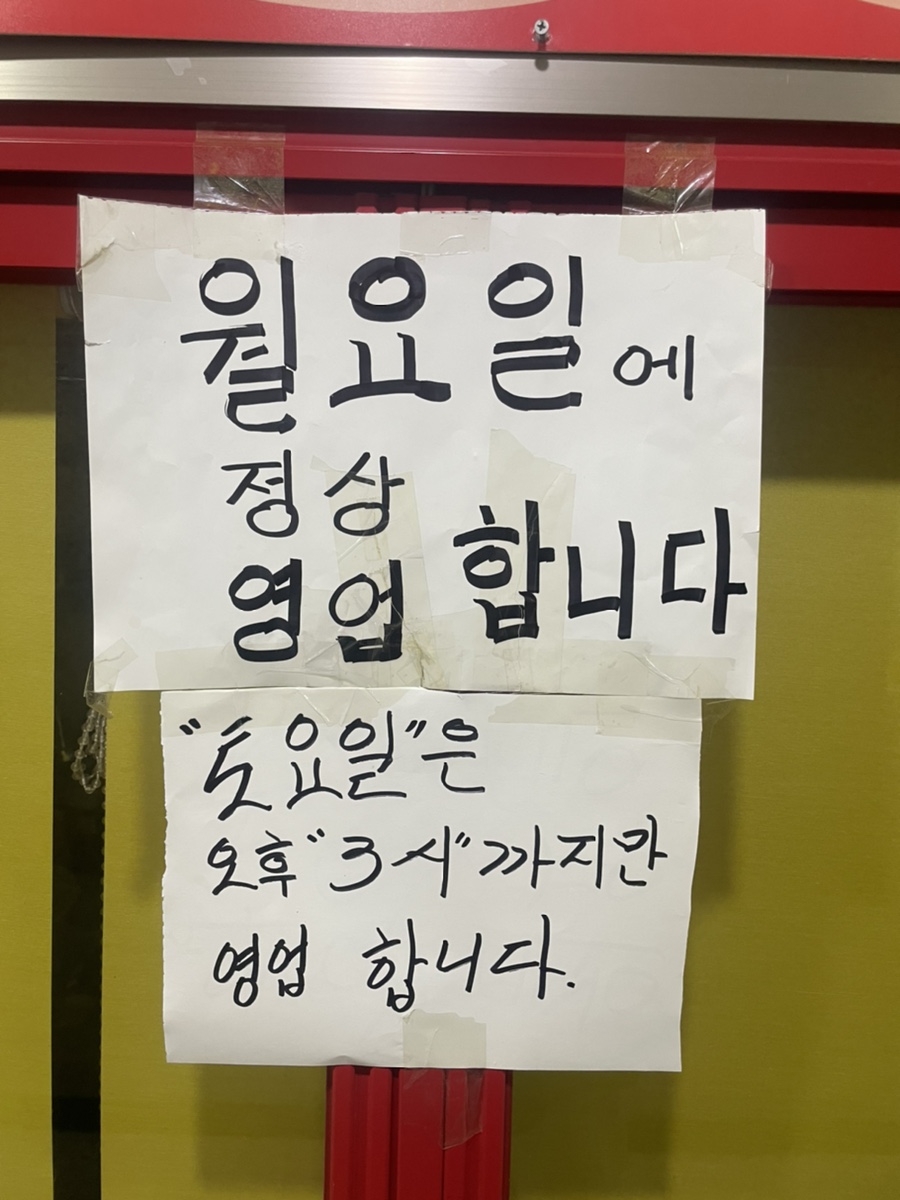 월요일에
정상
영업 합니다
"토요일"은
오후 "3시"까지만
영업 합니다.